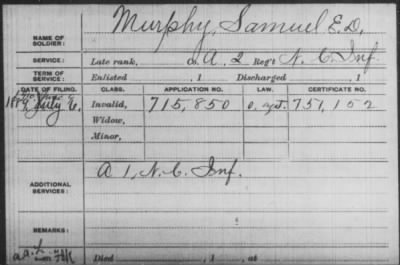 NAME OF SOLDIER: Murphy, Samuel E. D.
SERVICE: Late rank, Co. A, 2 Reg't N. C. Inf.
TERM OF SERVICE: Enlisted , 1 Discharged , 1
DATE OF FILING. CLASS. APPLICATION NO. LAW. CERTIFICATE NO.
July 6, Invalid, 715,850 751,152
Widow,
Minor,
ADDITIONAL SERVICES: A 1, N. C. Inf.
REMARKS:
Died , 1 , at